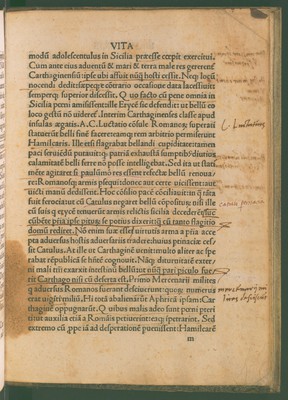 VITA
modū adolescentulus in Sicilia præesse cœpit exercitui.
Cum ante eius aduentū & mari & terra male res gererent̄
Carthaginensiū: ipse ubi affuit nūq̄ hosti cessit. Neq; locū
nocendi dedit: sæpeq; e cōtrario occasione data lacessiuit
semperq; superior discessit. Quo facto cū pene omnia in
Sicilia pœni amisissent: ille Erycē sic defendit: ut bellū eo
loco gestū nō uideret̄. Interim Carthaginenses classe apud
insulas ægatis. A. C. Luctatio cōsule Romanoꝝ superati
statuerūt belli finē facere: eamq; rem arbitrio permiserunt
Hamilcaris. Ille etsi flagrabat bellandi cupiditate: tamen
paci seruiēdū putauit: q patriā exhaustā sumptib; diutius
calamitatē belli ferre nō posse intelligebat. Sed ita ut statī
mēte agitaret si paulūmō res essent refectæ bellū renoua
re: Romanosq; armis persequi: donec aut certe uicissent: aut
uicti manū dedissent. Hoc cōsilio pacē
fuit ferociat̄ cū Catulus negaret bellū cōpositur; nisi ille
cū suis q erycē tenuerūt armis relictis sicilia decederēt: suc
cūbēte p̄ria ipse piturꝝ se potius dixerit: q̄ cū tanto flagitio
domū rediret. Nō enim suæ esse uirtutis arma a p̄ria acce
pta aduersus hostis aduersariis tradere: huius pinaciæ ces
sit Catulus. At ille ut Carthaginē uenit: multo aliter ac spe
rabat rēpublicā se hn̄tē cognouit. Nāq; diuturnitate exter
ni mali tāt exarsit intestinū bellū: ut nūq̄ pari piculo fue
rit Carthago nisi cū deserta est. Primo Mercenarii milites
q aduersus Romanos fuerant desciuerunt: quoꝝ numerus
erat uiginti miliū. Hi totā abalienarūt Aphricā: ipsam Car
thaginē oppugnarūt. Quibus malis adeo sunt pœni perri
titi: ut auxilia etiā a Romāis petiuerint: eaq; īpetrarint. Sed
extremo cū ꝓpe iā ad desperationē puenissent: Hamilcarē
m